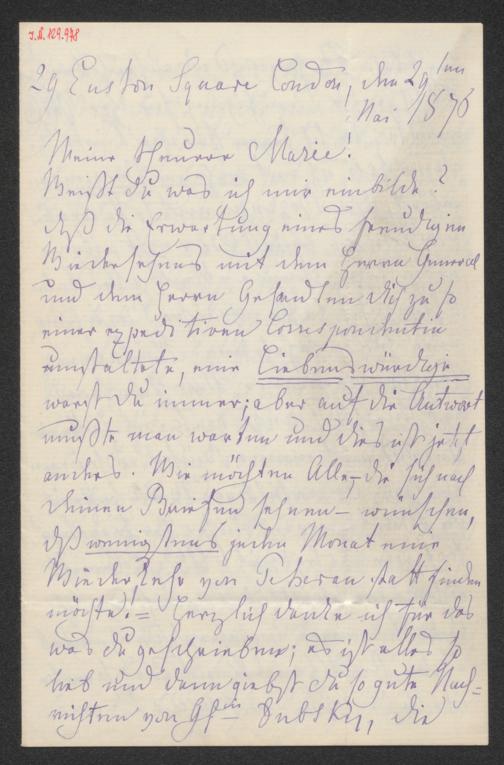 I.N. 129.978
29 Euston Square London, den 29ten
Mai 1876
Meine theuere Marie!
Weißt Du was ich mir einbilde?
daß die Erwartung eines freudigen
Wiedersehens mit dem Herrn General
und dem Herrn Gesandten Dich zu so
einer expeditiven Correspondentin
umstaltete, eine liebenswürdige
warst Du immer; aber auf die Antwort
mußte man warten und dies ist jetzt
anders. Wie möchten Alle, die sich nach
Deinen Briefen sehnen – wünschen,
daß wenigstens jeden Monat eine
Wiederkehr von Teheran statt finden
möchte! = Herzlich danke ich für das
was Du geschrieben; es ist alles so
lieb und dann giebst Du so gute Nach=
richten von Gfin Dubsky, die